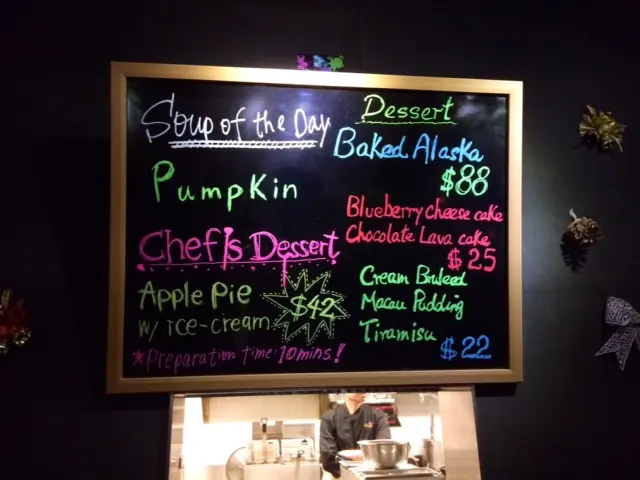 Soup of the Day
Pumpkin
Chef's Dessert
Apple Pie
w/ ice-cream
$42
*Preparation time: 10mins!
Dessert
Baked Alaska
$88
Blueberry cheese cake
Chocolate Lava cake
$25
Cream Bruleed
Macau Pudding
Tiramisu
$22